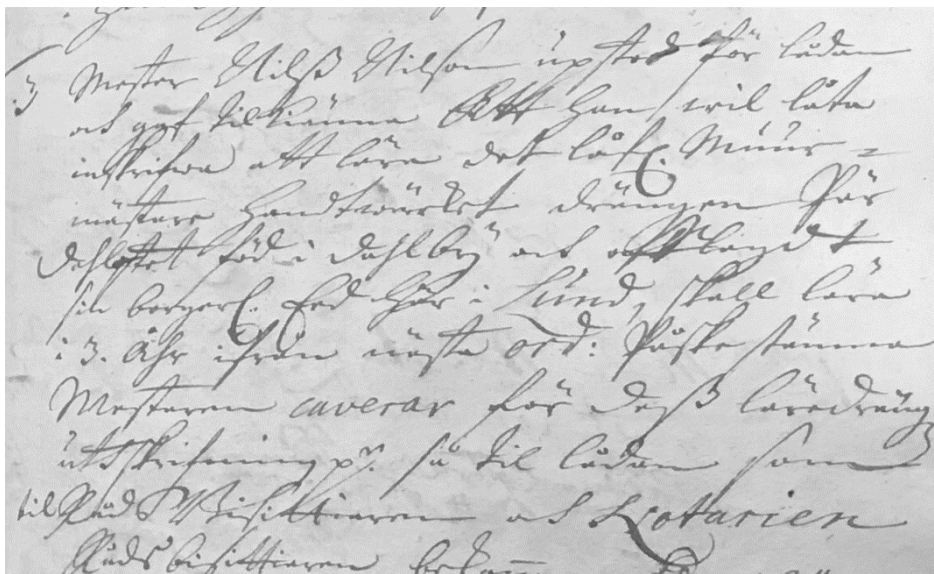 3 Mester Nilß Nilson upsted för lådan
och gaf tilkiänna Att han wil låta
inskrifwa att lära det låfl. Muur=
mästare handtwärket drängen Pär
född i Dahlby och aflagdt
sin borgerl. Eed här i Lund, skall lära
i 3. Åhr ifrån nästa ord: Påske stämma
Mesteren caverar för deß läredräng
utskrifning så til lådan som
til Råds Bisittiaren och Notarien
Rådsbisittiaren